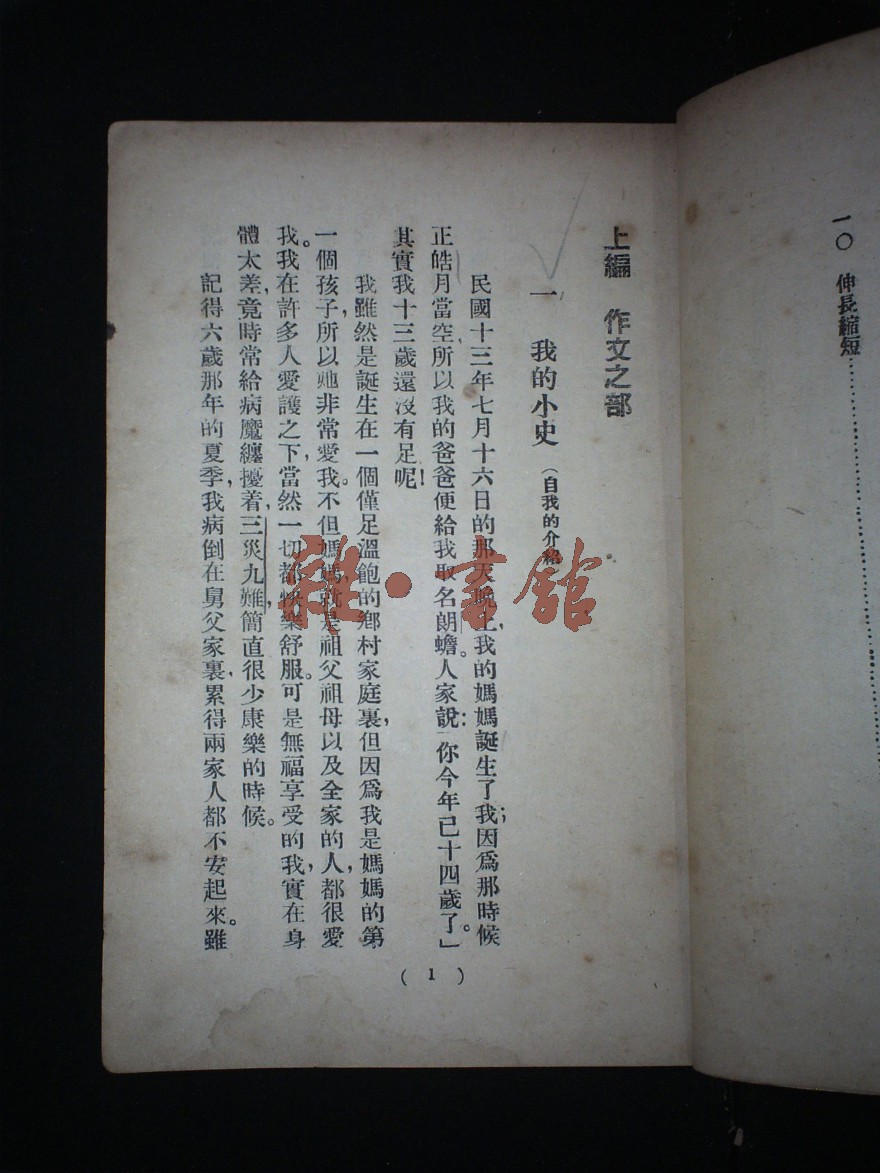 一〇　伸長縮短……………………
上編　作文之部
一　我的小史（自我的介紹）
民國十三年七月十六日的那天晚上，我的媽媽誕生了我；因爲那時候
正皓月當空，所以我的爸爸便給我取名朗蟾。人家說：「你今年已十四歲了。」
其實我十三歲還沒有足呢！
我雖然是誕生在一個僅足溫飽的鄉村家庭裏，但因爲我是媽媽的第
一個孩子，所以她非常愛我。不但媽媽，就是祖父祖母以及全家的人，都很愛
我。我在許多人愛護之下，當然一切都快樂舒服。可是無福享受的我，實在身
體太差，竟時常給病魔纏擾着，三災九難，簡直很少康樂的時候。
記得六歲那年的夏季，我病倒在舅父家裏，累得兩家人都不安起來。雖
( 1 )
雜·書館